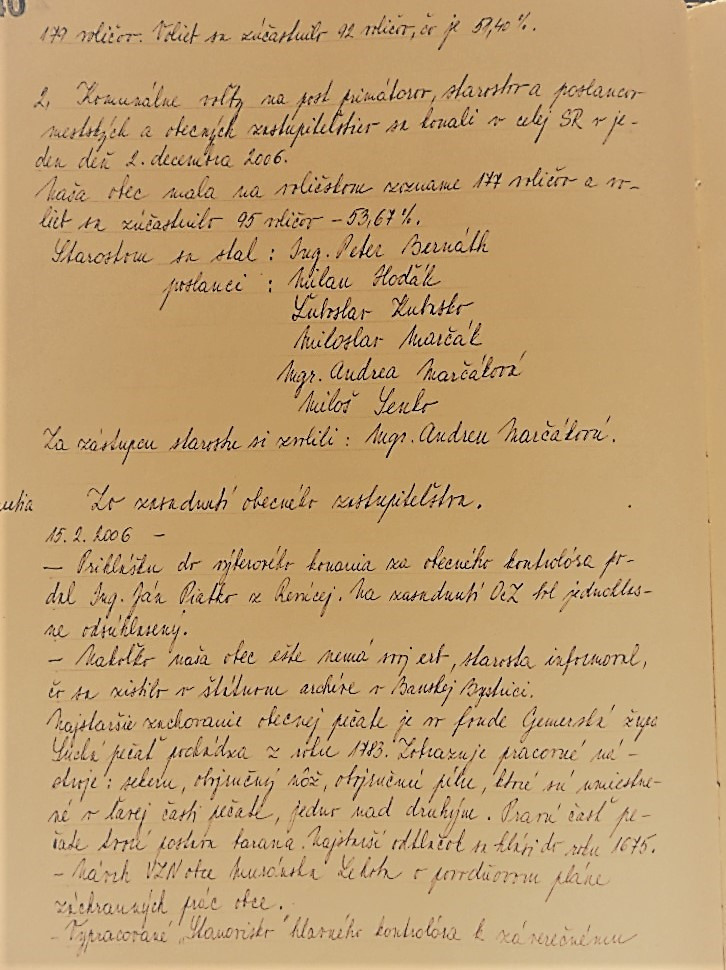 40
177 voličov. Volieb sa zúčastnilo 92 voličov, čo je 51,40 %.
2. Komunálne voľby na post primátorov, starostov a poslancov
mestských a obecných zastupiteľstiev sa konali v celej SR v je-
den deň 2. decembra 2006.
Naša obec mala na voličskom zozname 177 voličov a vo-
lieb sa zúčastnilo 95 voličov - 53,67 %.
Starostom sa stal : Ing. Peter Bernáth
poslanci : Milan Hodák
Ľuboslav Kubasko
Miloslav Marčák
Mgr. Andrea Marčáková
Miloš Senko
Za zástupcu starostu si zvolili : Mgr. Andreu Marčákovú.
Zo zasadnutí obecného zastupiteľstva.
15. 2. 2006 -
- Prihlášku do výberového konania za obecného kontrolóra po-
dal Ing. Ján Piatko z Revúcej. Na zasadnutí OcZ bol jednohlas-
ne odsúhlasený.
- Nakoľko naša obec ešte nemá svoj erb, starosta informoval,
čo sa zistilo v štátnom archíve v Banskej Bystrici.
Najstaršie zachovanie obecnej pečate je vo fonde Gemerská župa
Suchá pečať pochádza z roku 1783. Zobrazuje pracovné ná-
stroje : sekeru, obojručný nôž, obojručnú pílu, ktoré sú umiestne-
né v ľavej časti pečate, jedno nad druhým. Pravú časť pe-
čate tvorí postava barana. Najstarší odtlačok sa hlási do roku 1675.
- Návrh VZN obce Muránska Lehota o povodňovom pláne
záchranných prác obce.
- Vypracované „Stanovisko" hlavného kontrolóra k záverečnému